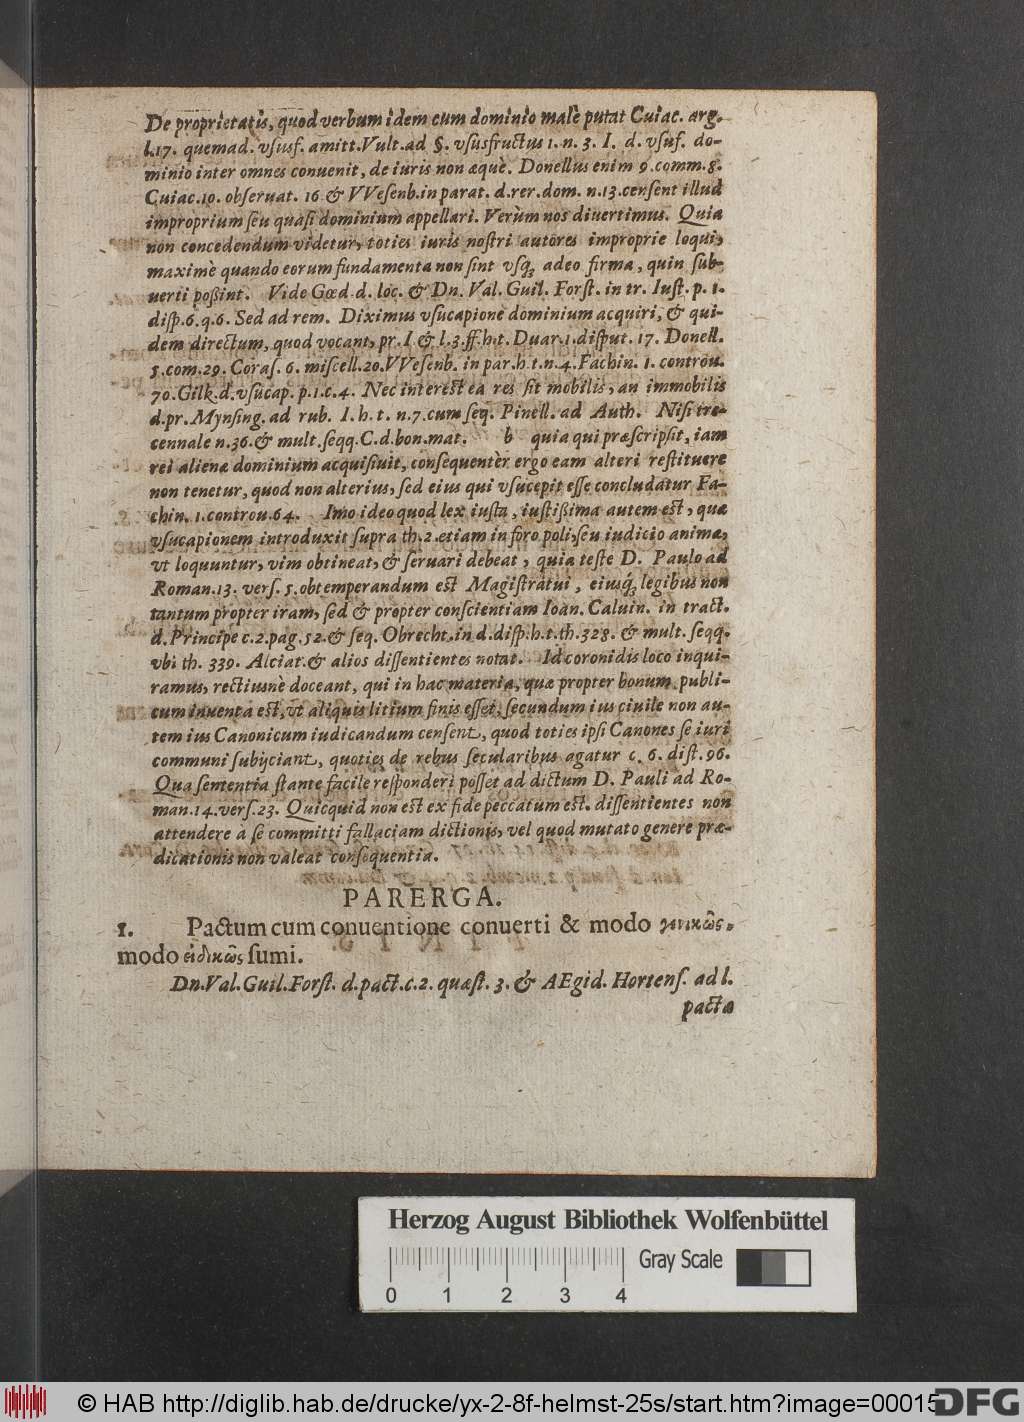 De proprietatis, quod verbum idem cum dominio malè putat Cuiac. arg.
l.17. quemad. vsusf. amitt. Vult. ad §. vsusfructus 1. n. 3. I. d. vsuf. do-
minio inter omnes conuenit, de iuris non æquè. Donellus enim 9. comm. 8.
Cuiac. 10. obseruat. 16 & VVesenb. in parat. d. rer. dom. n. 13. censent illud
improprium seu quasi dominium appellari. Verùm nos diuertimus. Quia
non concedendum videtur, toties iuris nostri autores improprie loqui,
maximè quando eorum fundamenta non sint vsq; adeo firma, quin sub-
uerti poßint. Vide Gœd. d. loc. & Dn. Val. Guil. Forst. in tr. Iust. p. 1.
disp. 6. q. 6. Sed ad rem. Diximus vsucapione dominium acquiri, & qui-
dem directum, quod vocant, pr. I & l. 3. ff. h. t. Duar. 1. disput. 17. Donell.
5. com. 29. Coras. 6. miscell. 20. VVesenb. in par. h. t. n. 4. Fachin. 1. controu.
70. Gilk. d. vsucap. p. 1. c. 4. Nec interest ea res sit mobilis, an immobilis
d. pr. Mynsing. ad rub. I. h. t. n. 7. cum seq. Pinell. ad Auth. Nisi tre-
cennale n. 36. & mult. seqq. C. d. bon. mat. b quia qui præscripsit, iam
rei alienæ dominium acquisiuit, consequentèr ergo eam alteri restituere
non tenetur, quod non alterius, sed eius qui vsucepit esse concludatur Fa-
chin. 1. controu. 64. Imo ideo quod lex iusta, iustißima autem est, quæ
vsucapionem introduxit supra th. 2. etiam in foro poli, seu iudicio animæ,
vt loquuntur, vim obtineat, & seruari debeat, quia teste D. Paulo ad
Roman. 13. vers. 5. obtemperandum est Magistratui, eiusq́; legibus non
tantum propter iram, sed & propter conscientiam Ioan. Caluin. in tract.
d. Principe c. 2. pag. 52. & seq. Obrecht. in d. disp. h. t. th. 328. & mult. seqq.
vbi th. 339. Alciat. & alios dissentientes notat. Id coronidis loco inqui-
ramus, rectiusnè doceant, qui in hac materia, quæ propter bonum publi-
cum inuenta est, vt aliquis litium finis esset, secundum ius ciuile non au-
tem ius Canonicum iudicandum censent, quod toties ipsi Canones se iuri
communi subijciant, quoties de rebus secularibus agatur c. 6. dist. 96.
Qua sententia stante facile responderi posset ad dictum D. Pauli ad Ro-
man. 14. vers. 23. Quicquid non est ex fide peccatum est. dissentientes non
attendere à se committi fallaciam dictionis, vel quod mutato genere præ-
dicationis non valeat consequentia.
PARERGA.
1. Pactum cum conuentione conuerti & modo γενικῶς,
modo εἰδικῶς sumi.
Dn. Val. Guil. Forst. d. pact. c. 2. quæst. 3. & AEgid. Hortens. ad l.
pacta
Herzog August Bibliothek Wolfenbüttel
Gray Scale
0 1 2 3 4
© HAB http://diglib.hab.de/drucke/yx-2-8f-helmst-25s/start.htm?image=00015
DFG